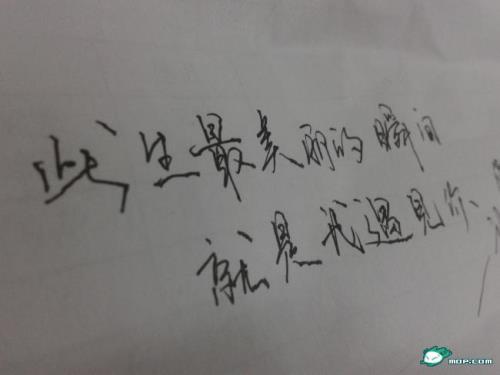 此生最美丽的瞬间
就是我遇见你
MOP.COM